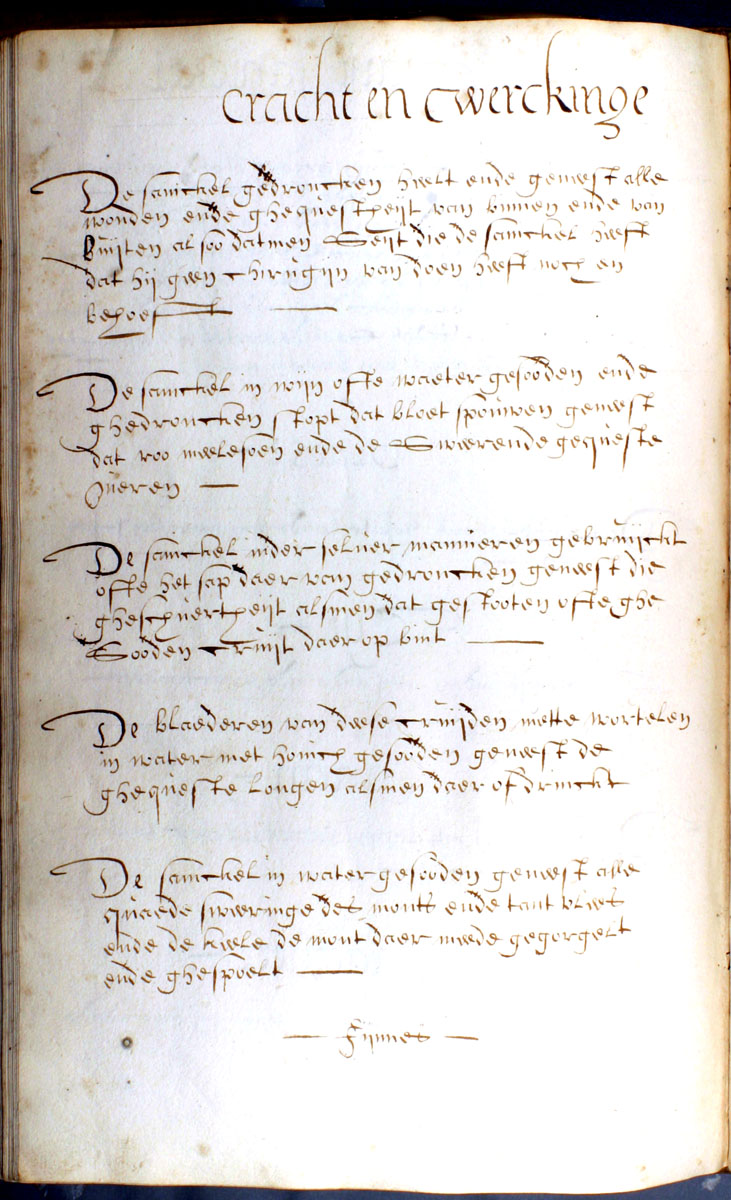 Cracht en Cwerckinge
De sanickel gedroncken heelt ende geneest alle
wonden ende ghequestheijt van binnen ende van
buijten alsoo datmen Seijt die de sanickel heeft
dat hij geen Chirugijn van doen heeft noch en
behoeft
De sanickel in wijn ofte waeter gesooden ende
ghedroncken stopt dat bloet spouwen geneest
dat roo meelesoen ende de Sweerende gequeste
nieren
De sanickel inder selver manieren gebruijckt
ofte het sap daer van gedroncken geneest die
gheschuertheijt alsmen dat gestooten ofte ghe
Sooden Cruijt daer op bint
De blaederen van deese Cruijden mette wortelen
in water met honich gesooden geneest de
ghequeste Longen alsmen daer of drinckt
De sanickel in water gesooden geneest alle
quaede sweeringe des monts ende tant vlees
ende de keele de mont daer meede gegorgelt
ende ghespoelt
Fijnnes